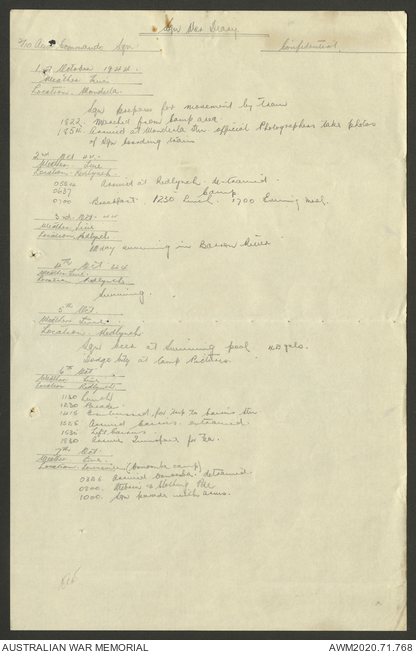 Sqn War Diary
2/10 Aust Commando Sqn Confidential
1st October 1944
Weather Fine
Location Wondecla
Sqn prepare for movement by train
1822 Marched from Camp area
1854 Arrived at Wondecla Stn official Photographers take photos
of Sqn boarding train
2nd Oct 44
Weather Fine
Location Redlynch
0524 Arrived at Redlynch detrained
0637 Camp
0700 Breakfast 1230 Lunch 1700 Evening meal
3rd Oct 44
Weather Fine
Location Redlynch
Many swimming in Barron River
4th Oct 44
Weather Fine
Location Redlynch
Swimming
5th Oct
Weather Fine
Location Redlynch
Sqn seen at Swimming pool
Dodge City at Camp Pictures
6th Oct
Weather Fine
Location Redlynch
1130 Lunch
1230 Parade
1415 Embussed for trip to Cairns Stn
Arrived Cairns entrained
Left Cairns
1830
7th Oct
Weather Fine
Location
Arrived detrained
0800
1000 Sqn parade with arms
AUSTRALIAN WAR MEMORIAL
AWM2020.71.768